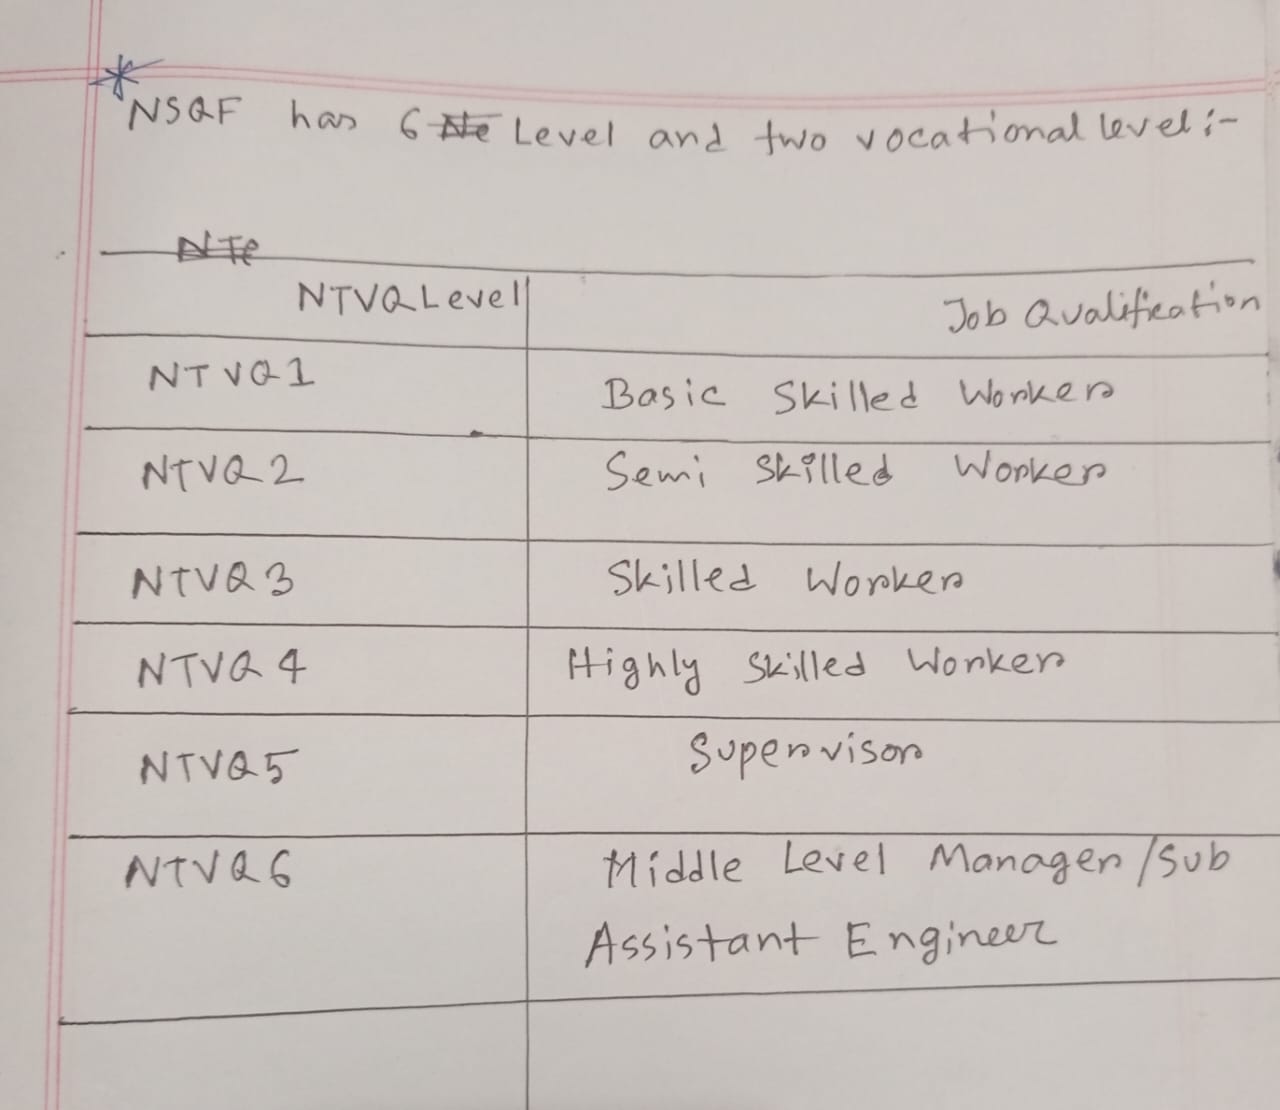 * NSQF has 6 Ne Level and two vocational level :-
NTe
NTVQ Level Job Qualification
NTVQ1 Basic Skilled Worker
NTVQ2 Semi Skilled Worker
NTVQ3 Skilled Worker
NTVQ4 Highly Skilled Worker
NTVQ5 Supervisor
NTVQ6 Middle Level Manager/Sub
Assistant Engineer